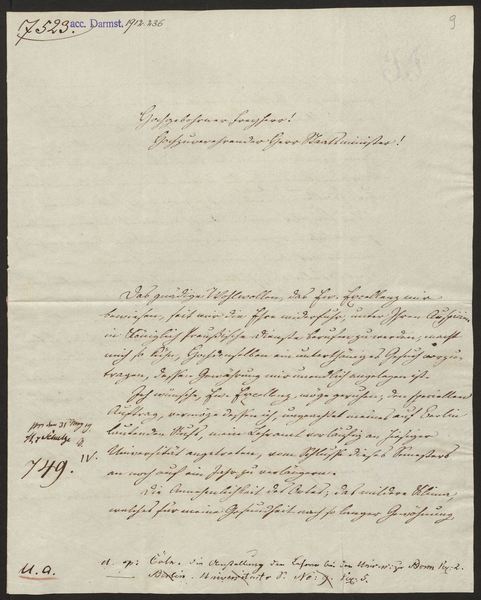 7523. acc. Darmst. 1912.236
9
Hochgebohrner Freyherr!
Hochzuverehrender Herr Staatsminister!
Das gnädige Wohlwollen, das Ew. Excellenz mir
bewiesen, seit mir die Ehre widerfuhr, unter Ihren Auspicien
in Königlich Preußische Dienste berufen zu werden, macht
mich so kühn, Hochdenselben ein unterthäniges Gesuch vorzu-
tragen, dessen Gewährung mir unendlich angelegen ist.
Ich wünsche, Ew. Excellenz möge geruhen, den speciellen
Auftrag, vermöge dessen ich, ungeachtet meines auf Berlin
lautenden Rufs, mein Lehramt vorläufig an hiesiger
Universität angetreten, vom Schluße dieses Semesters
an noch auf ein Jahr zu verlängern.
Die Annehmlichkeit des Ortes, das mildere Klima,
welches für meine Gesundheit nach so langer Gewöhnung
den 31 May 19
749. IV.
M. a.
d. op: Cöln. die Anstellung der Lehrer bei der Univers. zu Bonn Vix. 2.
Berlin. Universitäts S. No: 9. Vix. 5.